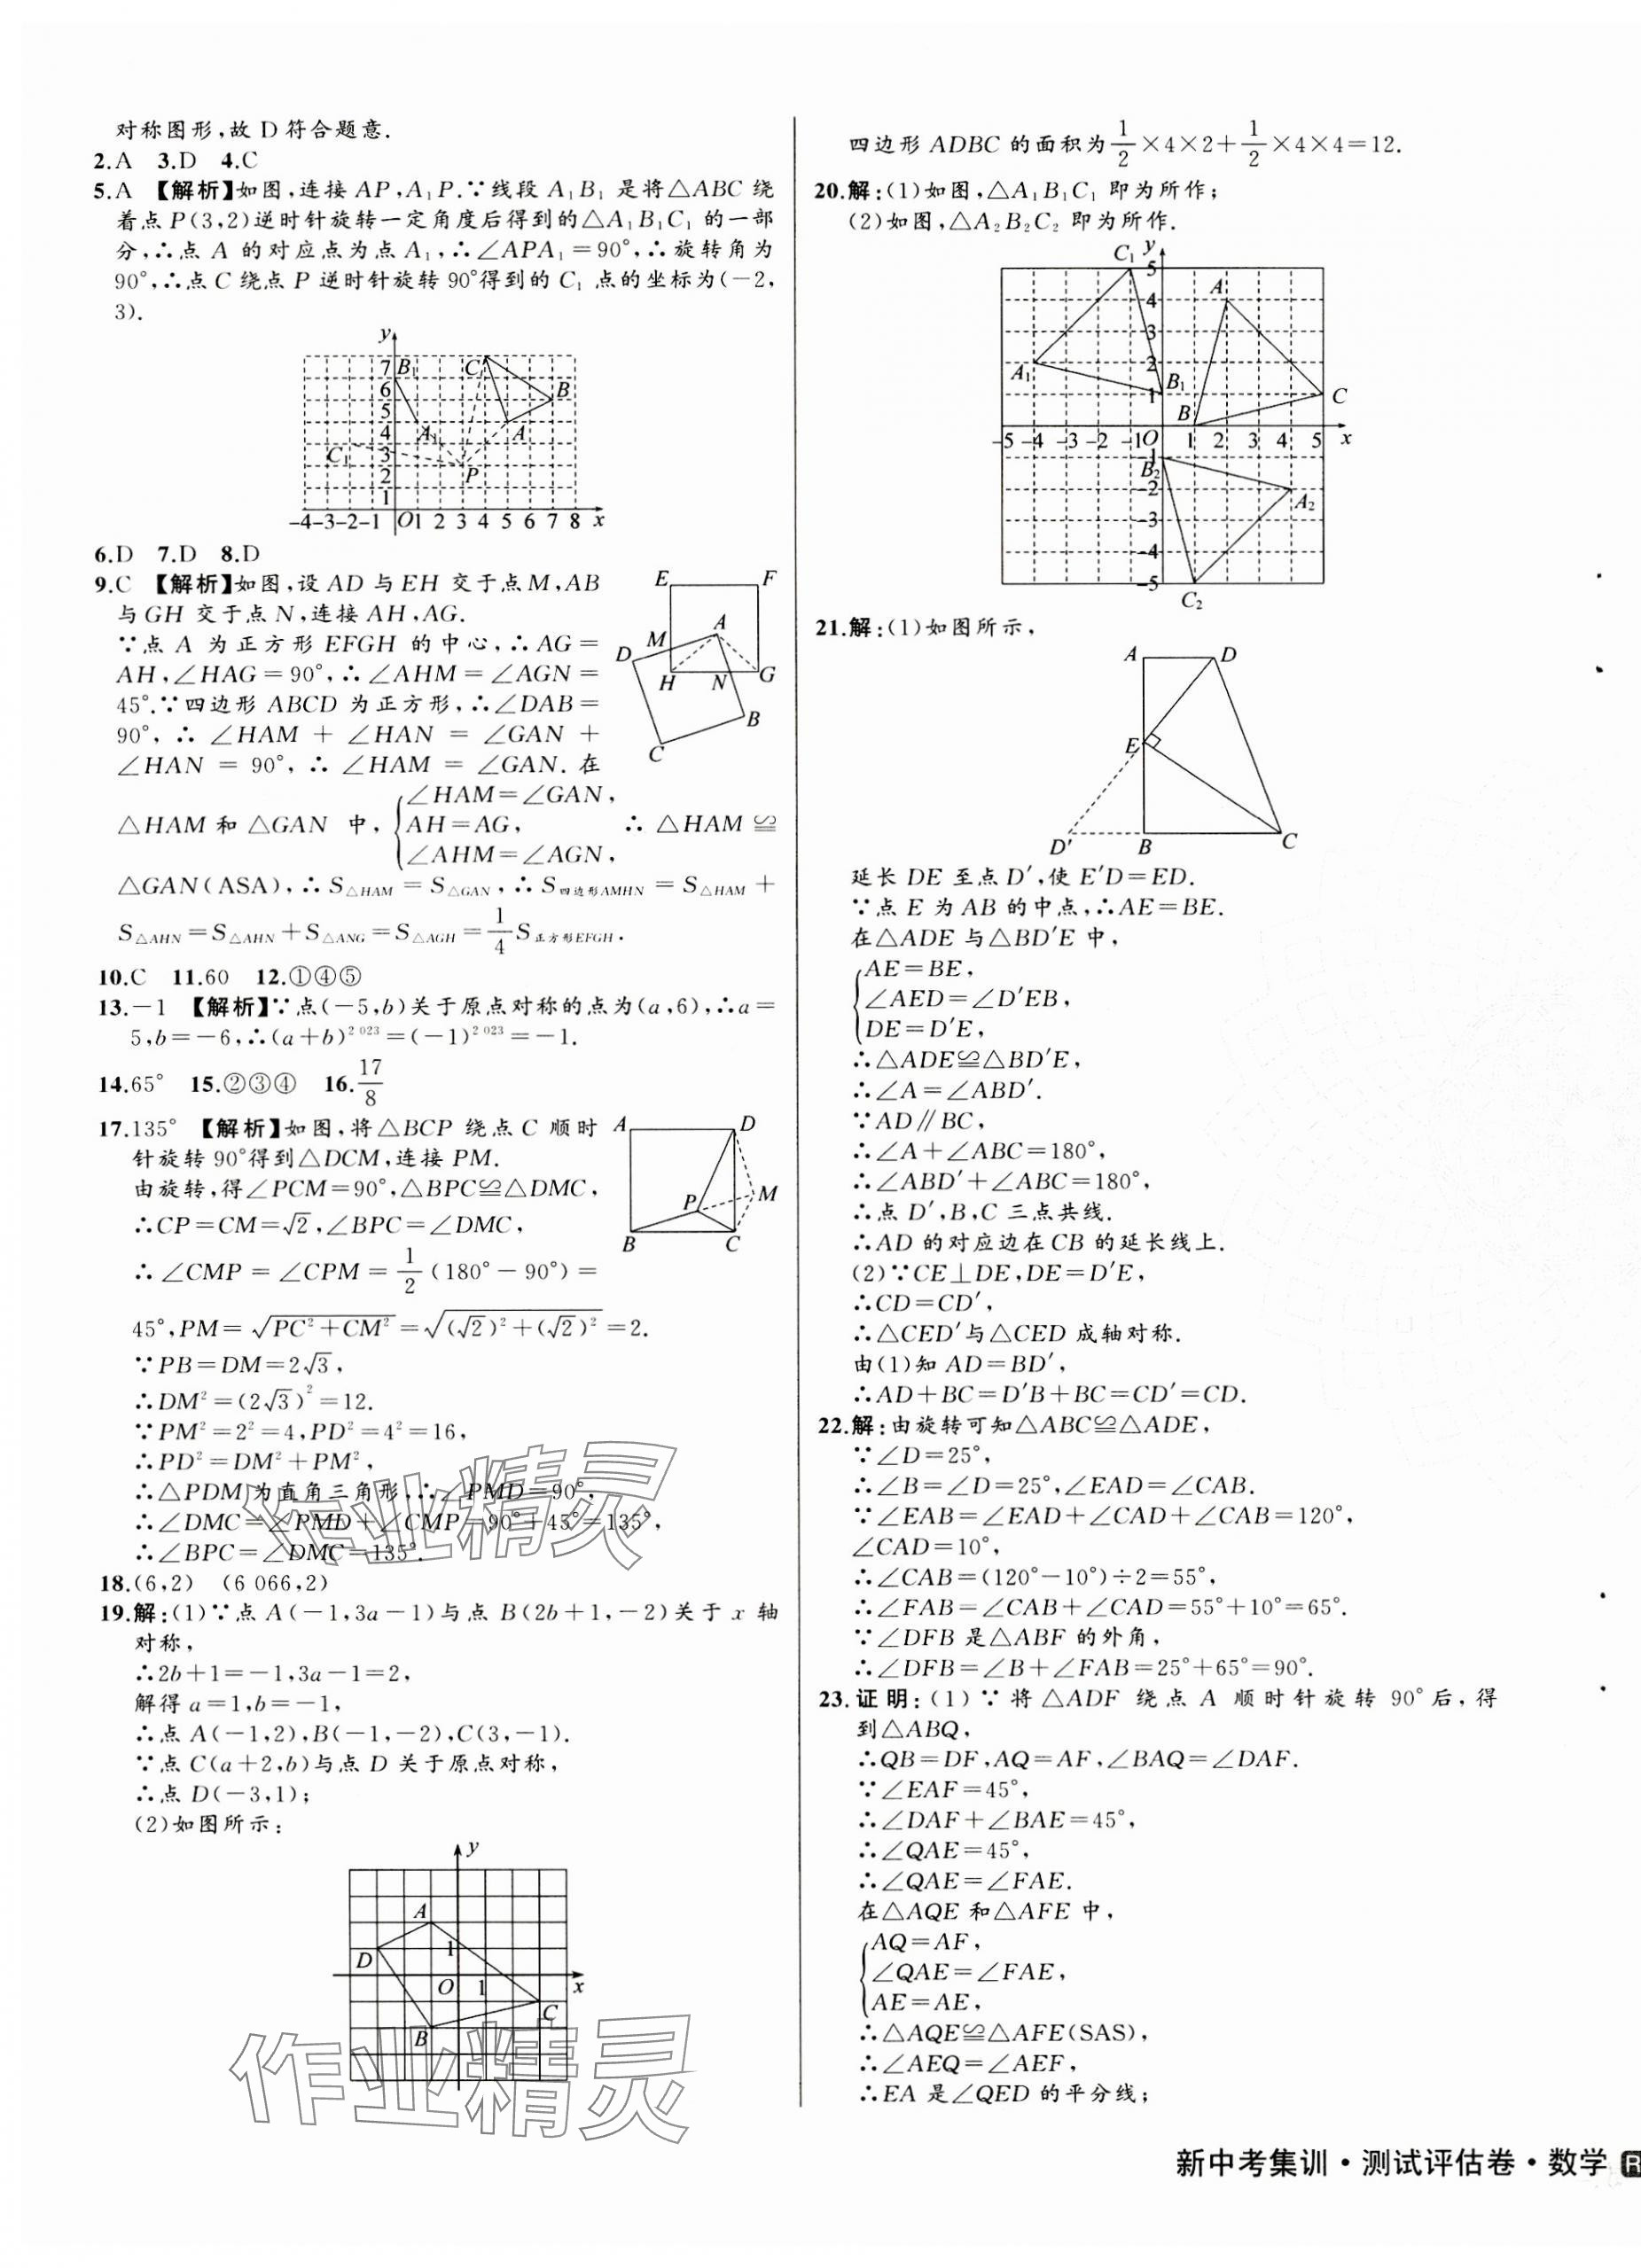 对称图形,故 D 符合题意.
2.A 3.D 4.C
5.A 【解析】如图,连接 AP,A₁P.∵线段 A₁B₁ 是将△ABC 绕
着点 P(3,2)逆时针旋转一定角度后得到的△A₁B₁C₁ 的一部
分,∴点 A 的对应点为点 A₁,∴∠APA₁=90°,∴旋转角为
90°,∴点 C 绕点 P 逆时针旋转 90°得到的 C₁ 点的坐标为(-2,
3).
y
7 B₁ C
6 B
5
4 A₁ A
C₁ 3
2 P
1
-4 -3 -2 -1 O 1 2 3 4 5 6 7 8 x
6.D 7.D 8.D
9.C 【解析】如图,设 AD 与 EH 交于点 M,AB
与 GH 交于点 N,连接 AH,AG.
∵点 A 为正方形 EFGH 的中心,∴AG=
AH,∠HAG=90°,∴∠AHM=∠AGN=
45°.∵四边形 ABCD 为正方形,∴∠DAB=
90°,∴∠HAM+∠HAN=∠GAN+
∠HAN=90°,∴∠HAM=∠GAN.在
E F
A
M
D
H N G
B
C
△HAM 和 △GAN 中,{∠HAM=∠GAN,
AH=AG,
∠AHM=∠AGN,
∴△HAM≌
△GAN(ASA),∴S△HAM=S△GAN,∴S四边形AMHN=S△HAM+
S△AHN=S△AHN+S△ANG=S△AGH=1/4 S正方形EFGH.
10.C 11.60 12.①④⑤
13.-1 【解析】∵点(-5,b)关于原点对称的点为(a,6),∴a=
5,b=-6,∴(a+b)² ⁰²³=(-1)² ⁰²³=-1.
14.65° 15.②③④ 16.17/8
17.135° 【解析】如图,将△BCP 绕点 C 顺时
针旋转 90°得到△DCM,连接 PM.
由旋转,得∠PCM=90°,△BPC≌△DMC,
∴CP=CM=√2,∠BPC=∠DMC,
∴∠CMP=∠CPM=1/2(180°-90°)=
A D
P M
B C
45°,PM=√(PC²+CM²)=√((√2)²+(√2)²)=2.
∵PB=DM=2√3,
∴DM²=(2√3)²=12.
∵PM²=2²=4,PD²=4²=16,
∴PD²=DM²+PM²,
∴△PDM 为直角三角形,∴∠PMD=90°,
∴∠DMC=∠PMD+∠CMP=90°+45°=135°,
∴∠BPC=∠DMC=135°.
作业精灵
18.(6,2) (6 066,2)
19.解:(1)∵点 A(-1,3a-1)与点 B(2b+1,-2)关于 x 轴
对称,
∴2b+1=-1,3a-1=2,
解得 a=1,b=-1,
∴点 A(-1,2),B(-1,-2),C(3,-1).
∵点 C(a+2,b)与点 D 关于原点对称,
∴点 D(-3,1);
(2)如图所示:
y
A
D 1
O 1 x
C
B
作业精灵
四边形 ADBC 的面积为1/2×4×2+1/2×4×4=12.
20.解:(1)如图,△A₁B₁C₁ 即为所作;
(2)如图,△A₂B₂C₂ 即为所作.
C₁ y
5
4 A
3
A₁ 2
1 B₁ C
B
-5 -4 -3 -2 -1 O 1 2 3 4 5 x
-1
B₂
-2 A₂
-3
-4
-5
C₂
21.解:(1)如图所示,
A D
E
D′ B C
延长 DE 至点 D′,使 E′D=ED.
∵点 E 为 AB 的中点,∴AE=BE.
在△ADE 与△BD′E 中,
{AE=BE,
∠AED=∠D′EB,
DE=D′E,
∴△ADE≌△BD′E,
∴∠A=∠ABD′.
∵AD∥BC,
∴∠A+∠ABC=180°,
∴∠ABD′+∠ABC=180°,
∴点 D′,B,C 三点共线.
∴AD 的对应边在 CB 的延长线上.
(2)∵CE⊥DE,DE=D′E,
∴CD=CD′,
∴△CED′与△CED 成轴对称.
由(1)知 AD=BD′,
∴AD+BC=D′B+BC=CD′=CD.
22.解:由旋转可知△ABC≌△ADE,
∵∠D=25°,
∴∠B=∠D=25°,∠EAD=∠CAB.
∵∠EAB=∠EAD+∠CAD+∠CAB=120°,
∠CAD=10°,
∴∠CAB=(120°-10°)÷2=55°,
∴∠FAB=∠CAB+∠CAD=55°+10°=65°.
∵∠DFB 是△ABF 的外角,
∴∠DFB=∠B+∠FAB=25°+65°=90°.
23.证明:(1)∵将△ADF 绕点 A 顺时针旋转 90°后,得
到△ABQ,
∴QB=DF,AQ=AF,∠BAQ=∠DAF.
∵∠EAF=45°,
∴∠DAF+∠BAE=45°,
∴∠QAE=45°,
∴∠QAE=∠FAE.
在△AQE 和△AFE 中,
{AQ=AF,
∠QAE=∠FAE,
AE=AE,
∴△AQE≌△AFE(SAS),
∴∠AEQ=∠AEF,
∴EA 是∠QED 的平分线;
新中考集训·测试评估卷·数学 R